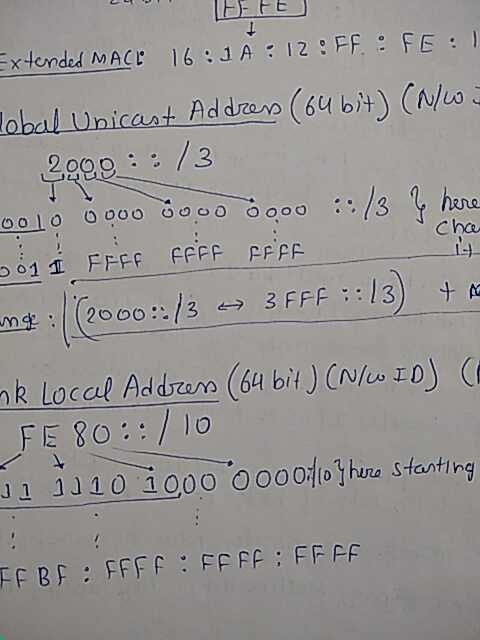 FFFE
Extended MAC: 16:1A:12:FF:FE:1
lobal Unicast Address (64 bit) (N/w I
2000::/3
0010 0000 0000 0000 ::/3 } here
cha
001 FFFF FFFF FFFF
it
ange: (2000::/3 ↔ 3FFF::/3) +
nk Local Address (64 bit) (N/w ID) (
FE80::/10
11 1110 1000 0000::/10 } here starting
FFBF : FFFF : FFFF : FFFF